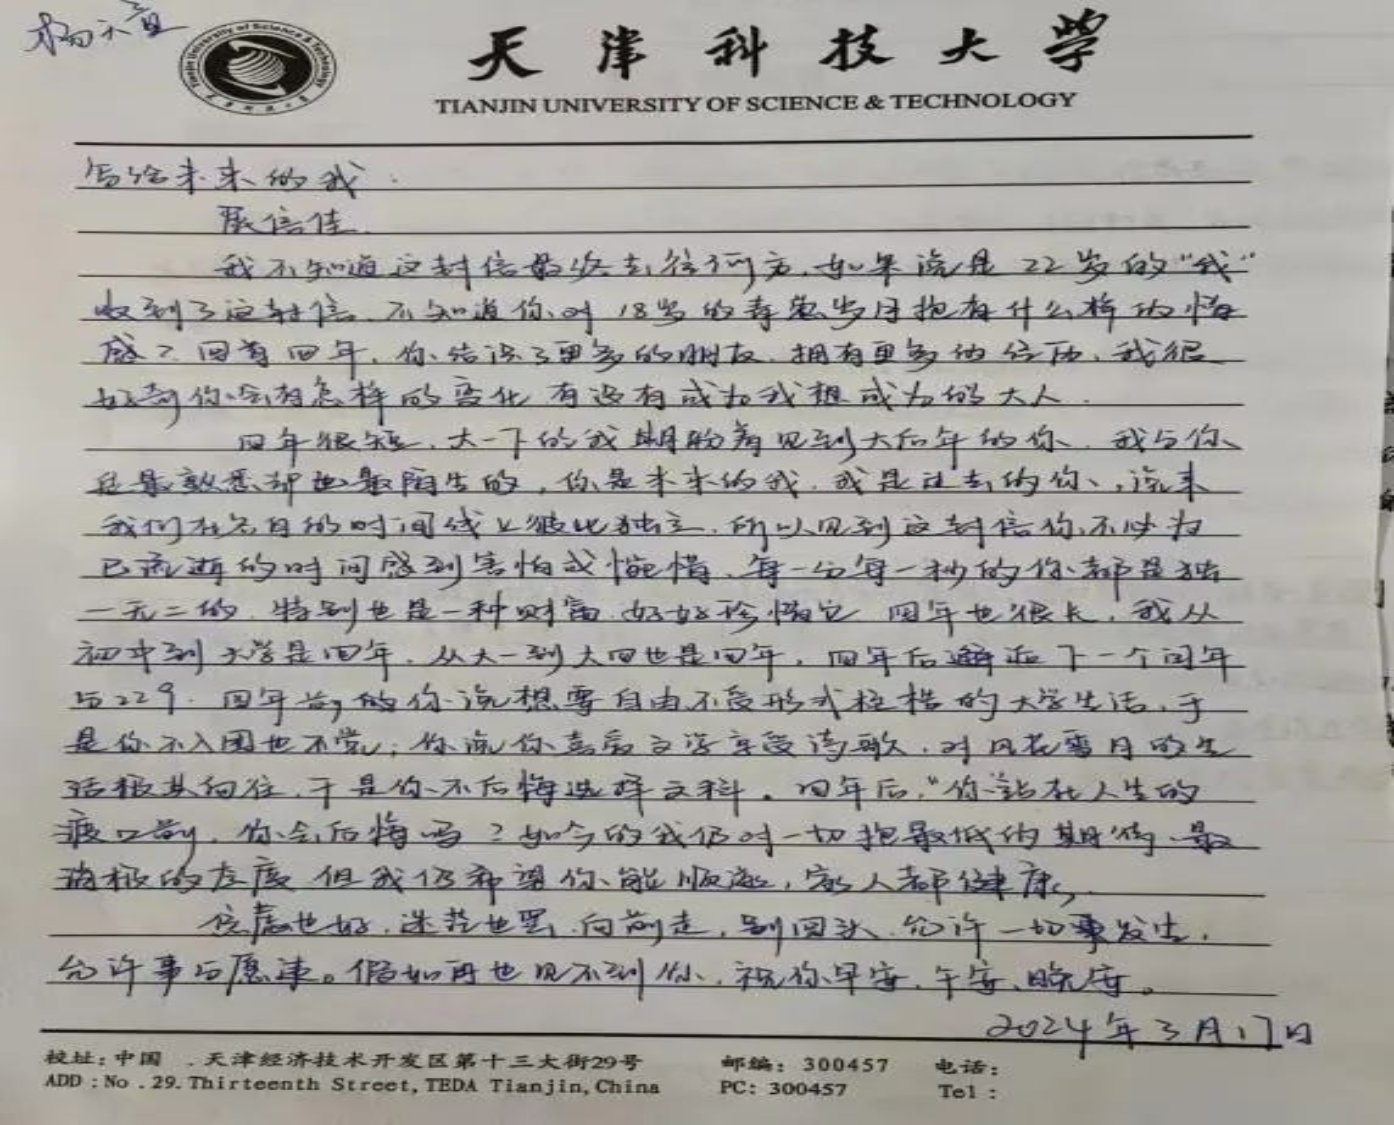 天津科技大学
TIANJIN UNIVERSITY OF SCIENCE & TECHNOLOGY
写给未来的我:
展信佳.
我不知道这封信最终去往何方,如果说是22岁的“我”
收到了这封信,不知道你对18岁的青葱岁月抱有什么样的情
感?回首四年,你结识了更多的朋友,拥有更多的经历,我很
好奇你会有怎样的变化,有没有成为我想成为的大人.
四年很短,大一下的我期盼着见到大后年的你,我与你
是最熟悉却也最陌生的,你是未来的我,我是过去的你,说来
我们在各自的时间线上彼此独立,所以见到这封信你不必为
已流逝的时间感到害怕或惋惜,每一分每一秒的你都是独
一无二的,特别也是一种财富,好好珍惜它.四年也很长,我从
初中到大学是四年,从大一到大四也是四年,四年后邂逅下一个闰年
与229.四年前的你说想要自由不受形式桎梏的大学生活,于
是你不入团也不党;你说你喜爱文学享受诗歌,对风花雪月的生
活极其向往,于是你不后悔选择文科。四年后,“你”站在人生的
渡口前,你会后悔吗?如今的我仍对一切抱最低的期待、最
消极的态度,但我仍希望你能顺遂,家人都健康,
焦虑也好,迷茫也罢,向前走,别回头,允许一切事发生,
允许事与愿违。假如再也见不到你,祝你早安、午安、晚安。
2024年3月17日
校址:中国 .天津经济技术开发区第十三大街29号 邮编:300457 电话:
ADD:No.29.Thirteenth Street,TEDA Tianjin,China PC:300457 Tel: